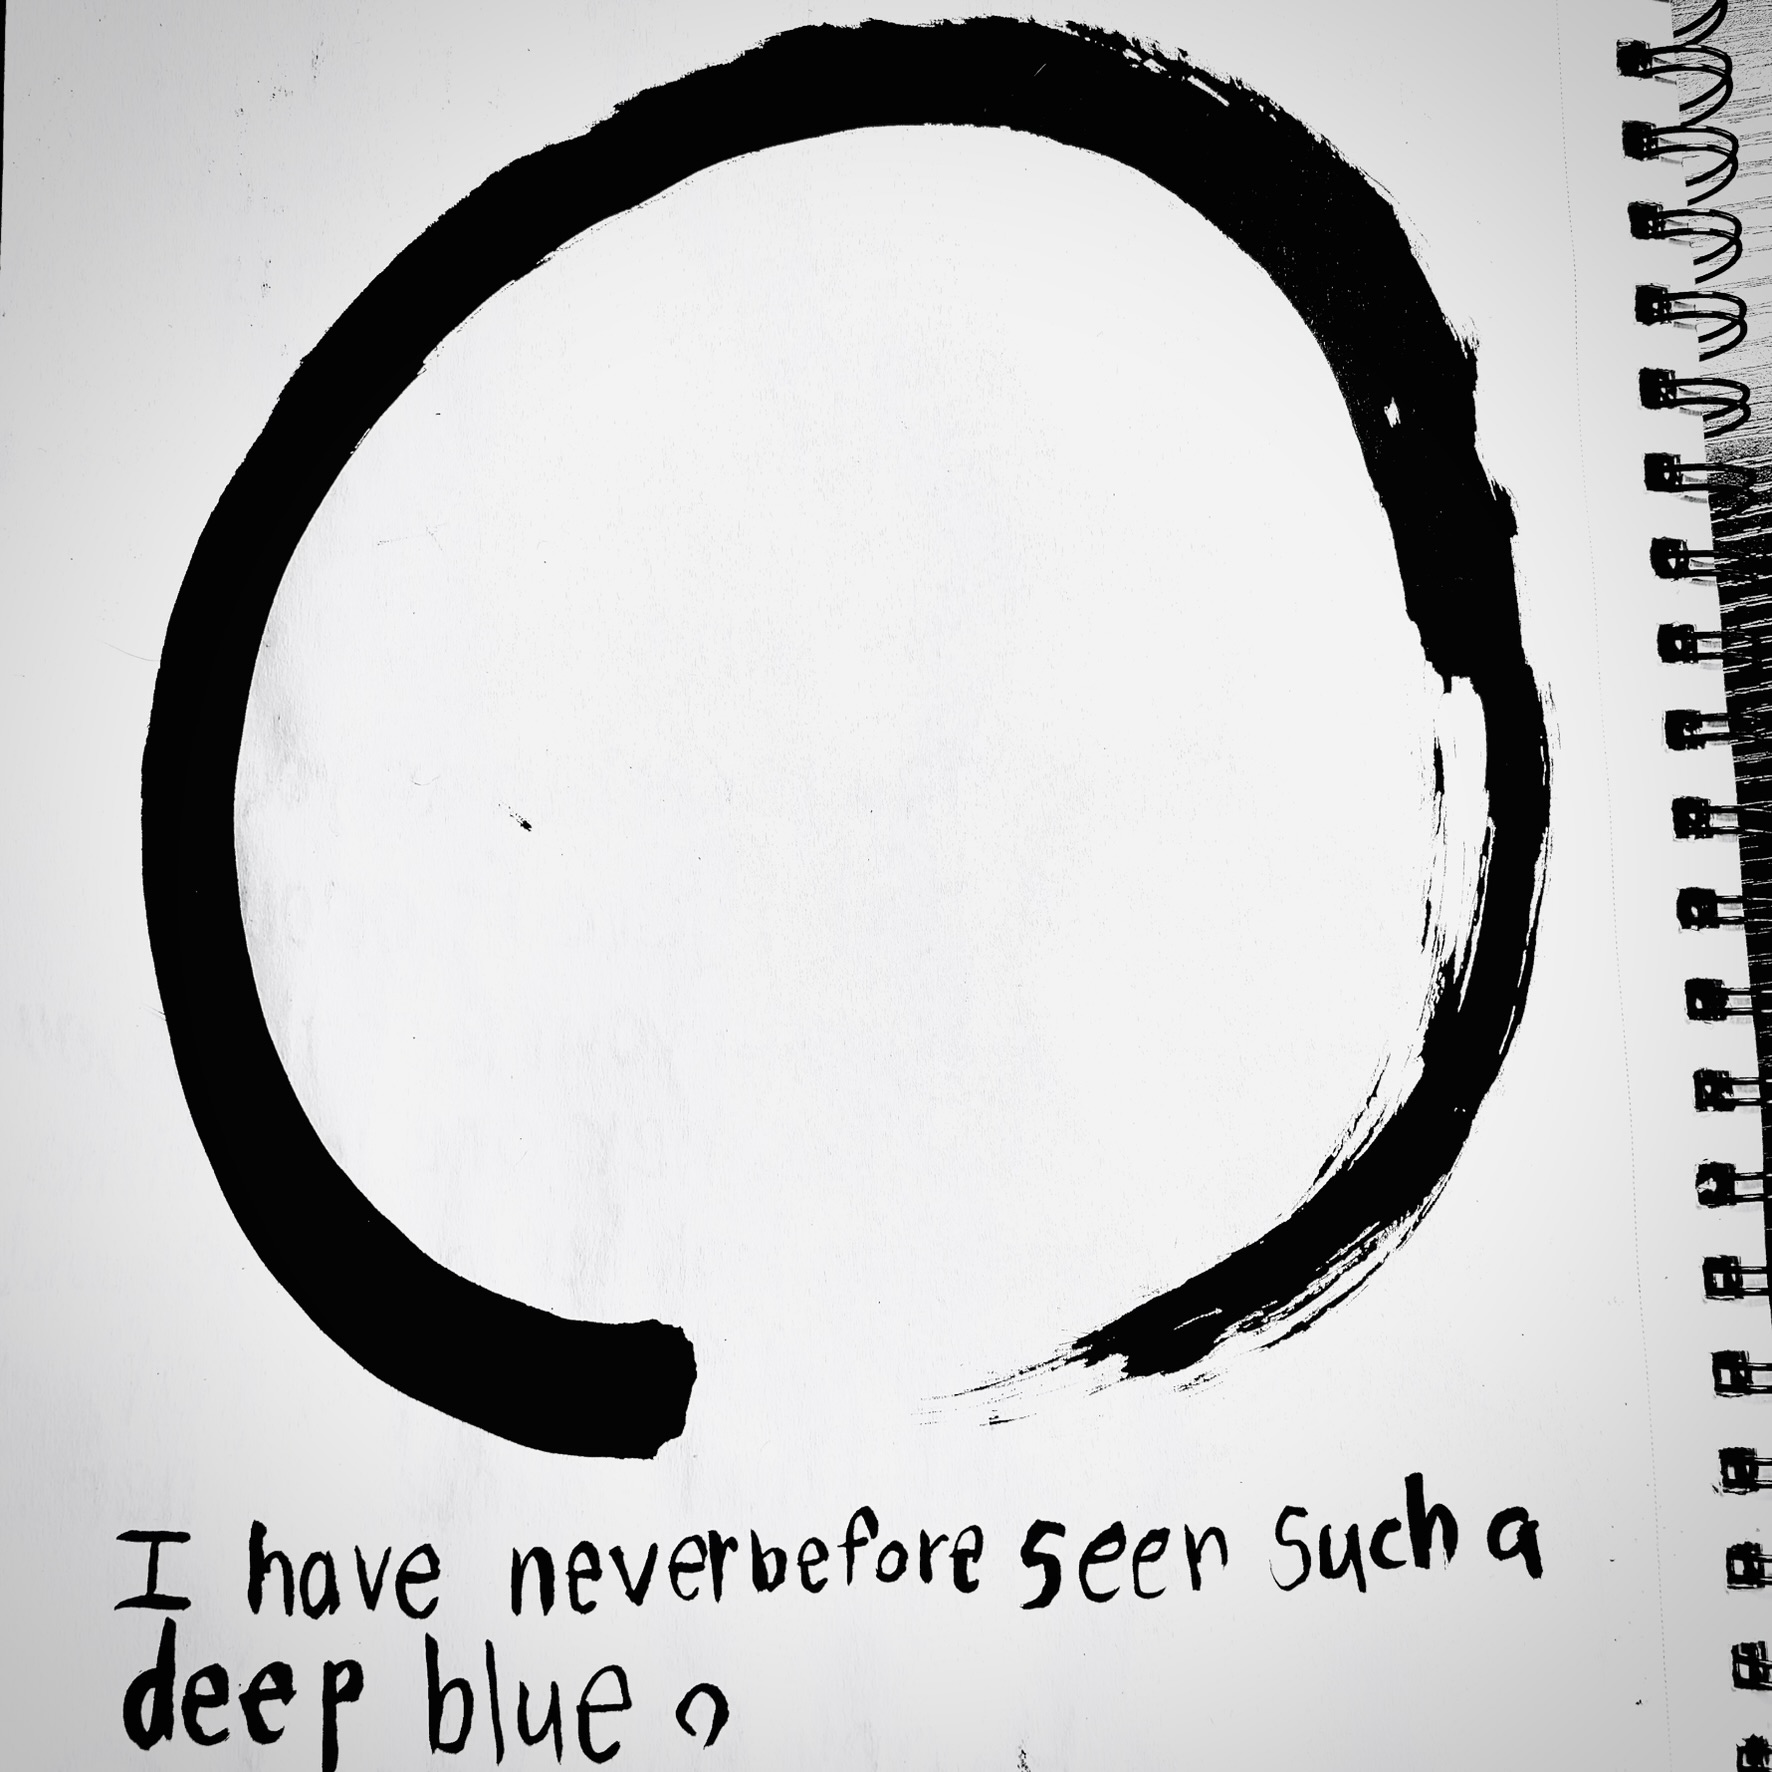 I have never before seen such a
deep blue.